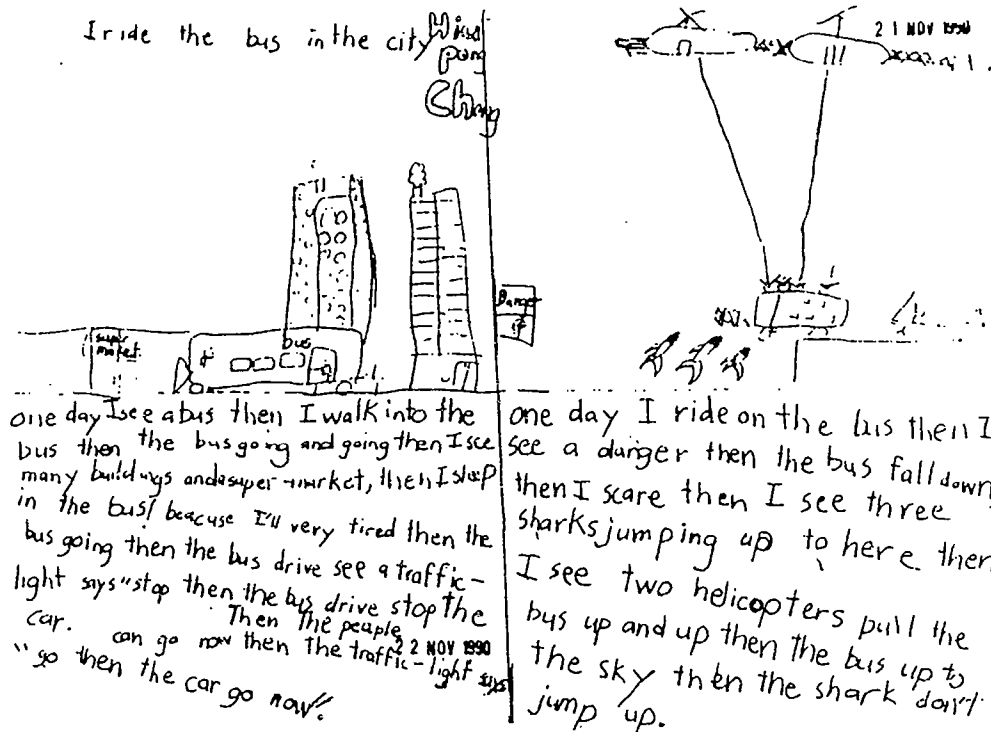 I ride the bus in the city
pong
21 NOV 1990
super
market
bus
Danger
one day I see a bus then I walk into the
bus then the bus going and going then I see
many buildings and a super-market, then I sleep
in the bus! beacuse I'll very tired then the
bus going then the bus drive see a traffic-
light says "stop then the bus drive stop the
car. Then the peuple
22 NOV 1990
can go now then the traffic-light says
"go then the car go now!"
one day I ride on the bus then I
see a danger then the bus fall down
then I scare then I see three
sharks jumping up to here then
I see two helicopters pull the
bus up and up then the bus up to
the sky then the shark don't
jump up.